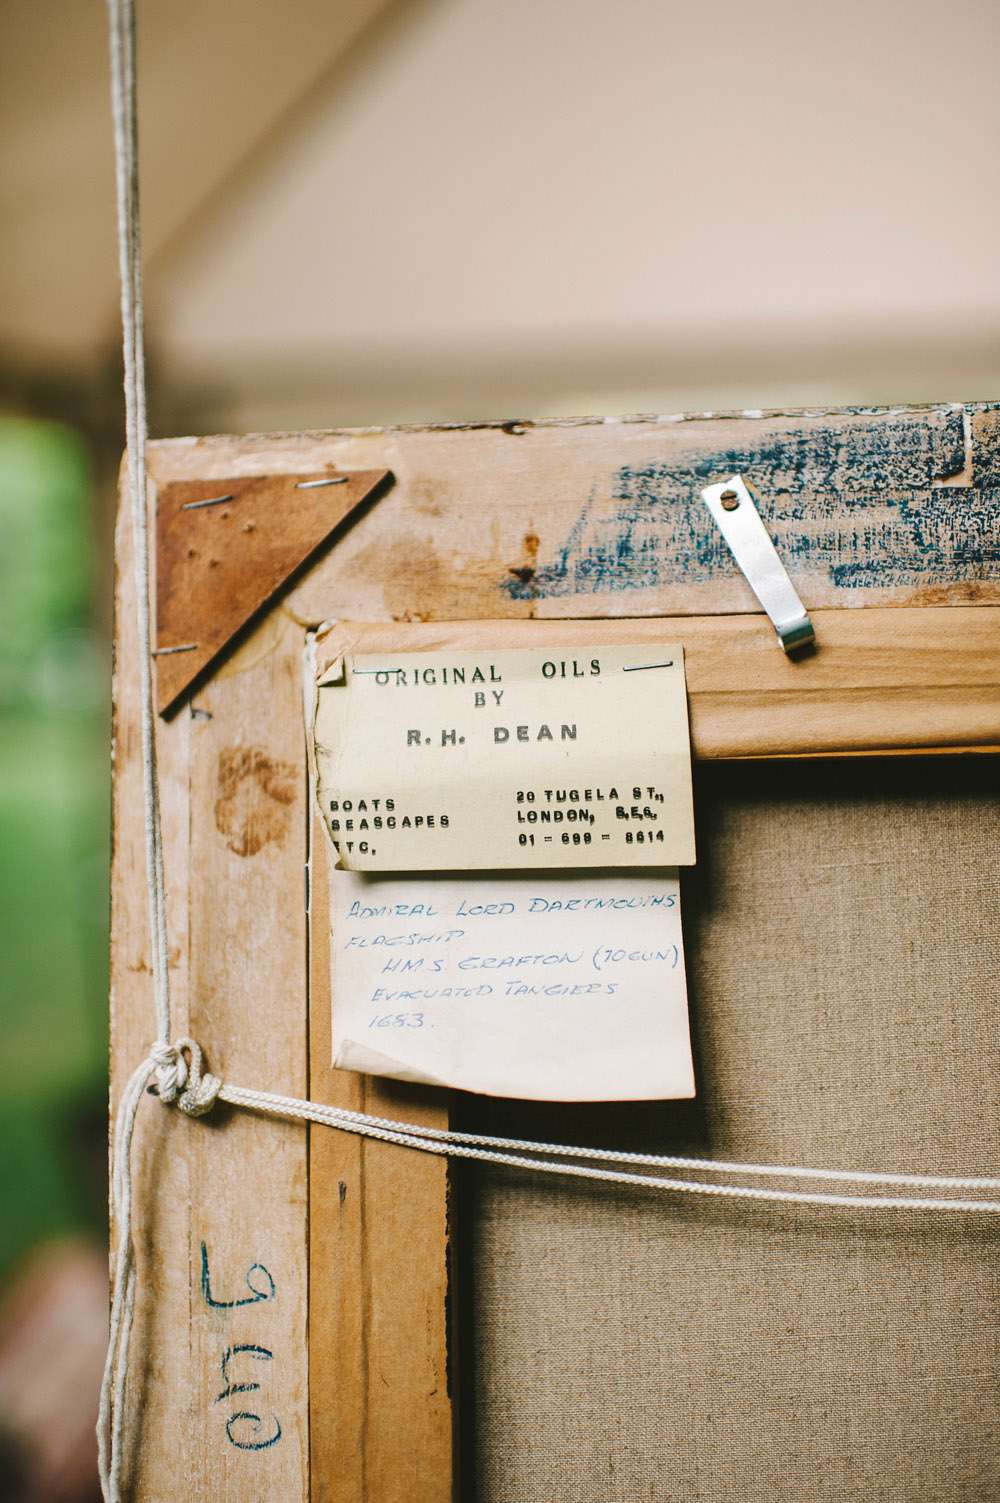 ORIGINAL OILS
BY
R.H. DEAN
BOATS
SEASCAPES
ETC.
20 TUGELA ST.,
LONDON, S.E.6.
01 - 699 - 8614
ADMIRAL LORD DARTMOUTHS
FLAGSHIP
HMS. GRAFTON (70 GUN)
EVACUATED TANGIERS
1683.